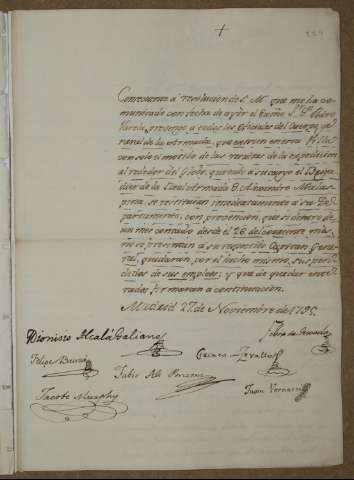 Consecuente á resolucion de S. M. que me ha co-
municado con fecha de ayer el Exmo S.r D.n Pedro
Varela, prevengo a todos los oficiales del Cuerpo ge-
neral de la Armada, que existen en esta Villa
con solo el motivo de las resultas de la expedicion
al rededor del Globo, que tubo a su cargo el Briga-
dier de la Real Armada D. Alexandro Malas-
pina, se restituian inmediatamente á su De-
partamento, con prevencion, que si dentro de
un mes contado desde el 26 del corriente mes
no se presentan a su respectivo Capitan Gene-
ral, quedaran, por el hecho mismo, suspen-
didos de sus empleos; y para de quedar ente-
rados, firmaran a continuacion.
Madrid 27 de Noviembre de 1795.
Dionisio Alcalá Galiano
Felipe Bauza
Fabio Ali Ponzoni
Juan Vernacci
Jacobo Murphy